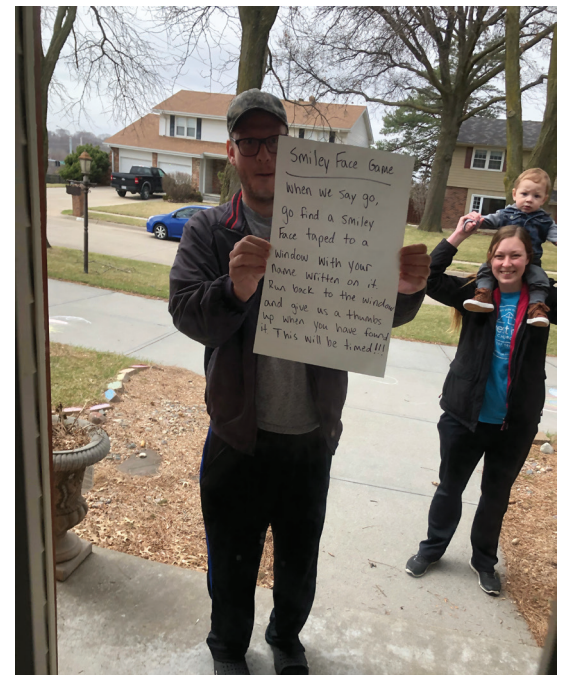 Smiley Face Game
When we say go,
go find a smiley
Face taped to a
window with your
name written on it.
Run back to the window
and give us a thumbs
up when you have found
it. This will be timed!!!